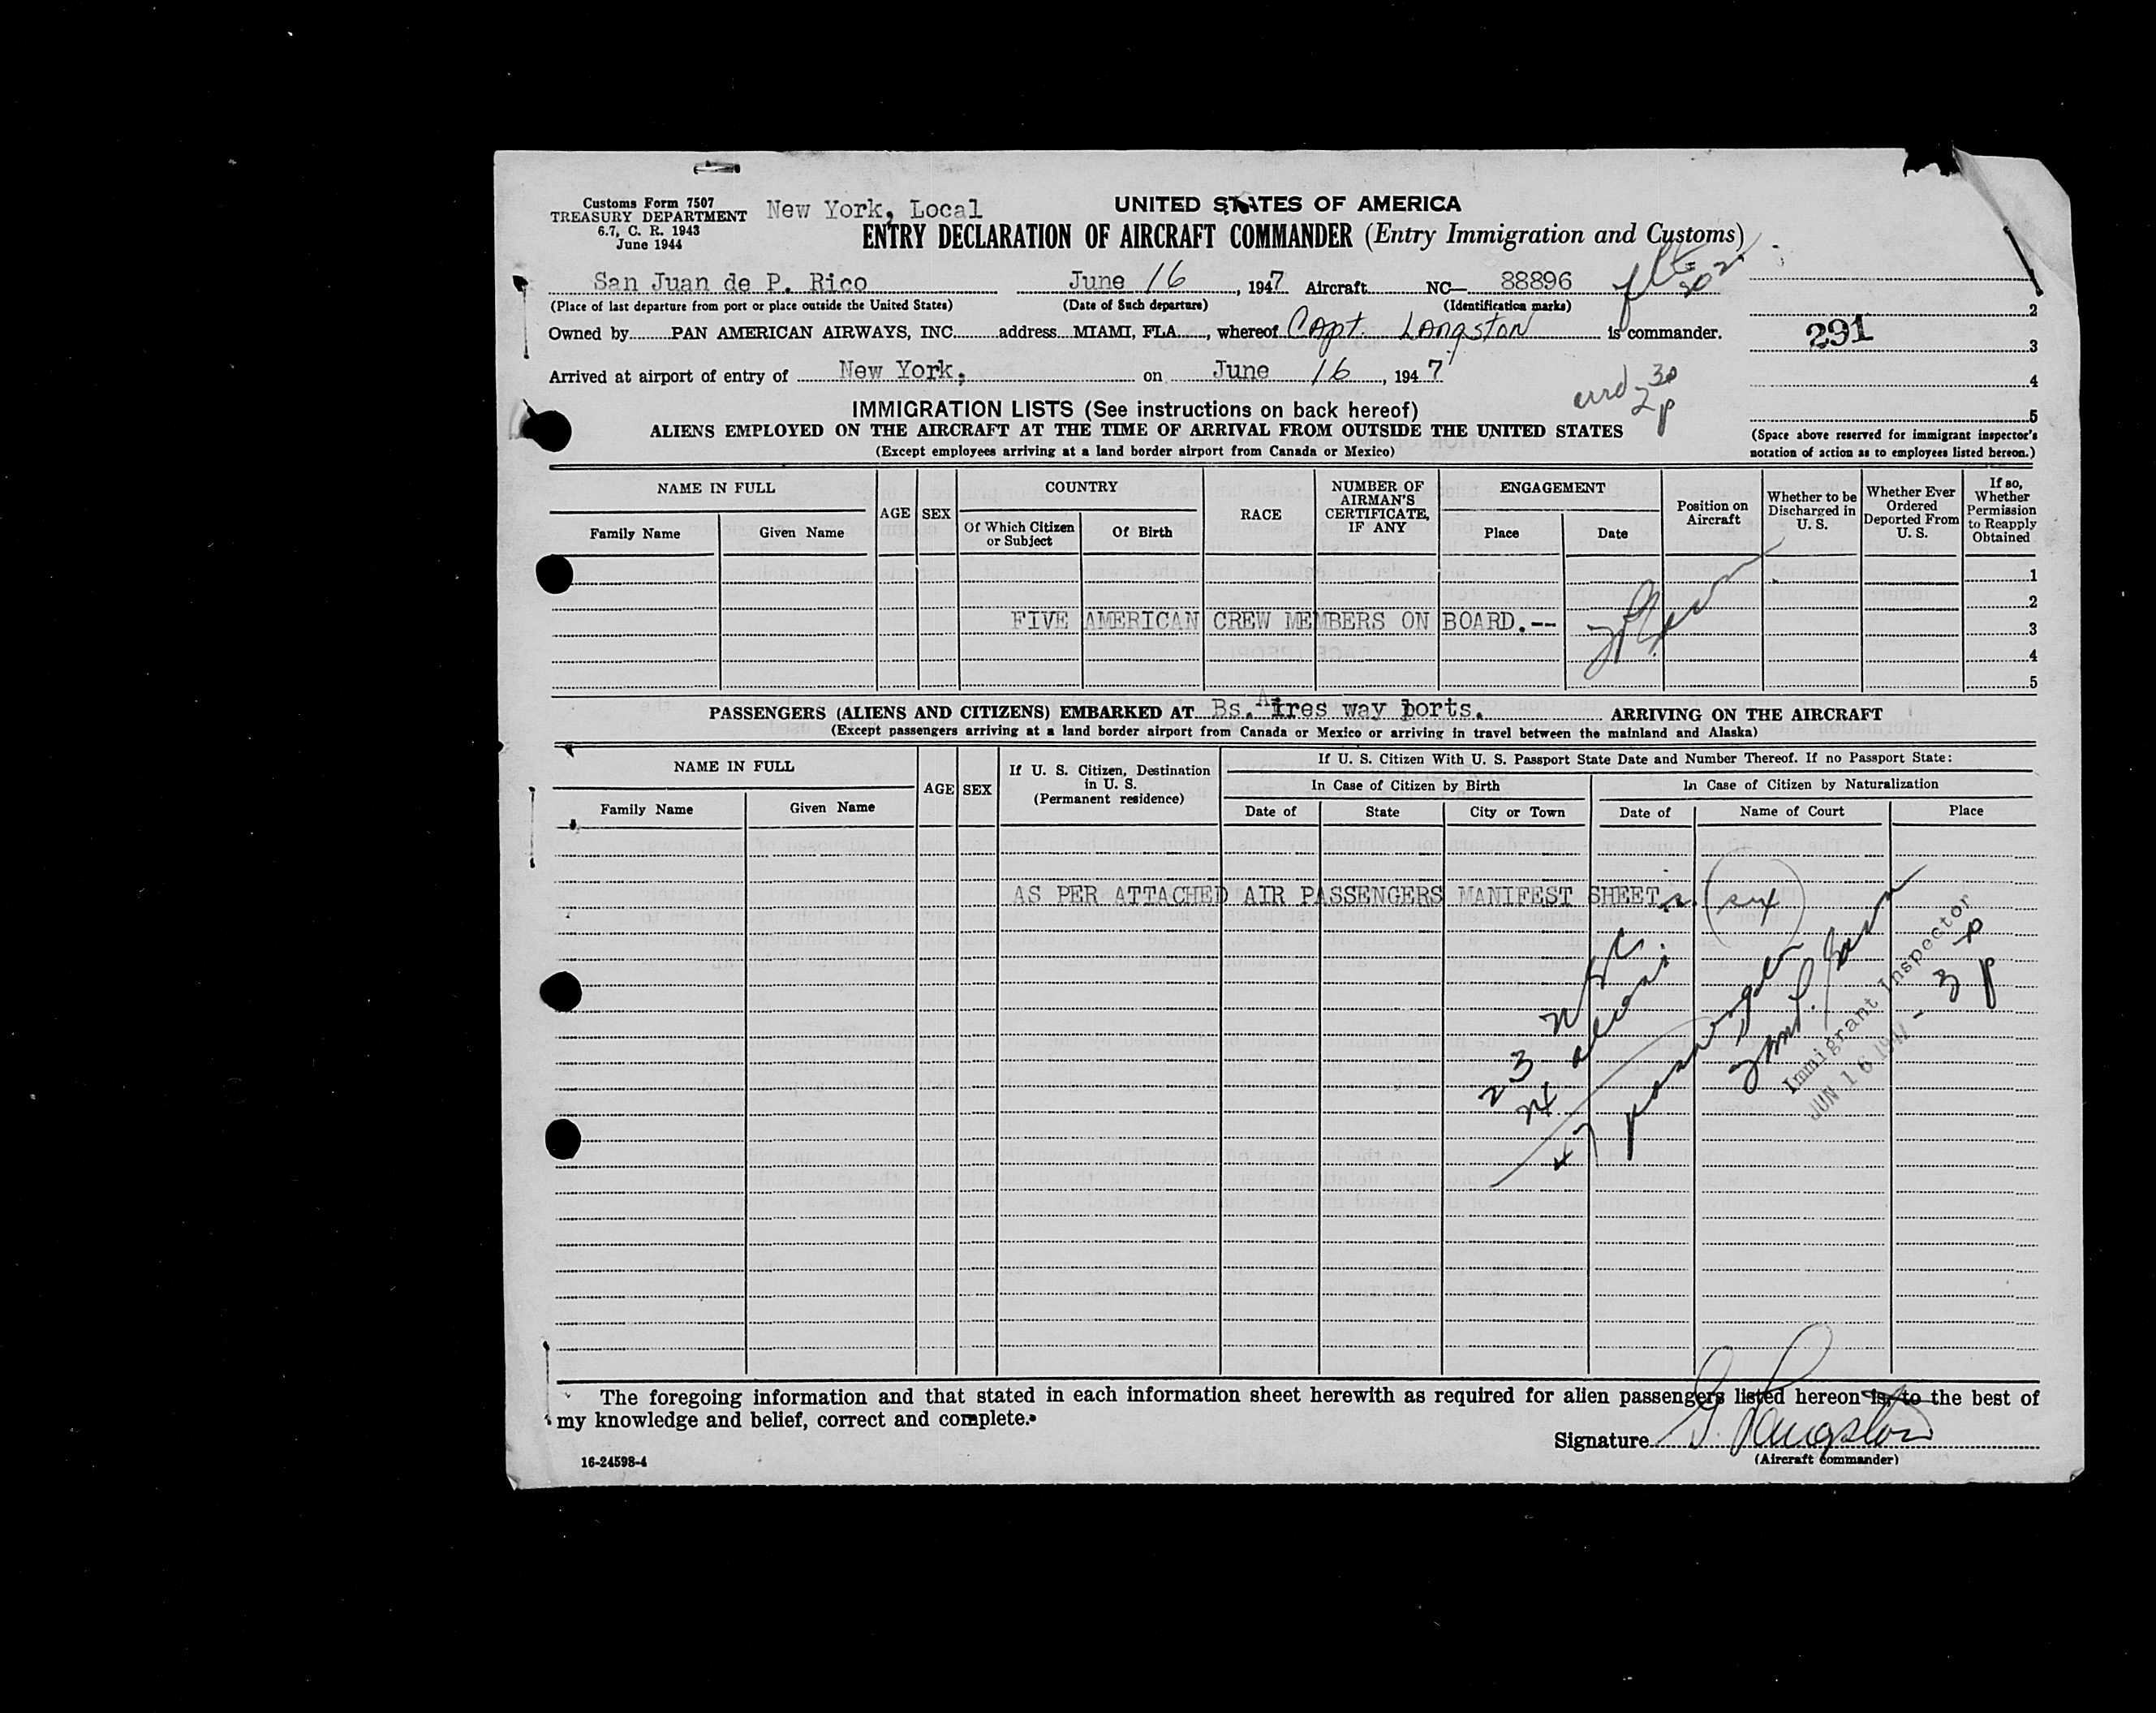 Customs Form 7507
TREASURY DEPARTMENT
6.7, C. R. 1943
June 1944
New York, Local
UNITED STATES OF AMERICA
ENTRY DECLARATION OF AIRCRAFT COMMANDER (Entry Immigration and Customs)
San Juan de P. Rico June 16, 1947 Aircraft NC— 88896
(Place of last departure from port or place outside the United States) (Date of Such departure) (Identification marks)
flt 202
Owned by PAN AMERICAN AIRWAYS, INC. address MIAMI, FLA., whereof Capt. Langston is commander.
Arrived at airport of entry of New York, on June 16, 1947
1
2
291
3
4
5
(Space above reserved for immigrant inspector's
notation of action as to employees listed hereon.)
IMMIGRATION LISTS (See instructions on back hereof)
ALIENS EMPLOYED ON THE AIRCRAFT AT THE TIME OF ARRIVAL FROM OUTSIDE THE UNITED STATES
(Except employees arriving at a land border airport from Canada or Mexico)
NAME IN FULL
Family Name Given Name
AGE SEX
COUNTRY
Of Which Citizen or Subject Of Birth
RACE
NUMBER OF AIRMAN'S CERTIFICATE, IF ANY
ENGAGEMENT
Place Date
Position on Aircraft
Whether to be Discharged in U. S.
Whether Ever Ordered Deported From U. S.
If so, Whether Permission to Reapply Obtained
1
2
FIVE AMERICAN CREW MEMBERS ON BOARD.--
3
4
5
PASSENGERS (ALIENS AND CITIZENS) EMBARKED AT Bs. Aires way ports. ARRIVING ON THE AIRCRAFT
(Except passengers arriving at a land border airport from Canada or Mexico or arriving in travel between the mainland and Alaska)
NAME IN FULL
Family Name Given Name
AGE SEX
If U. S. Citizen, Destination in U. S. (Permanent residence)
If U. S. Citizen With U. S. Passport State Date and Number Thereof. If no Passport State:
In Case of Citizen by Birth In Case of Citizen by Naturalization
Date of State City or Town Date of Name of Court Place
AS PER ATTACHED AIR PASSENGERS MANIFEST SHEETs. (six)
23 USC
24 aliens
47 passengers
Immigrant Inspector
JUN 16 1947
The foregoing information and that stated in each information sheet herewith as required for alien passengers listed hereon is, to the best of
my knowledge and belief, correct and complete.
Signature G. Langston
(Aircraft commander)
16-24598-4